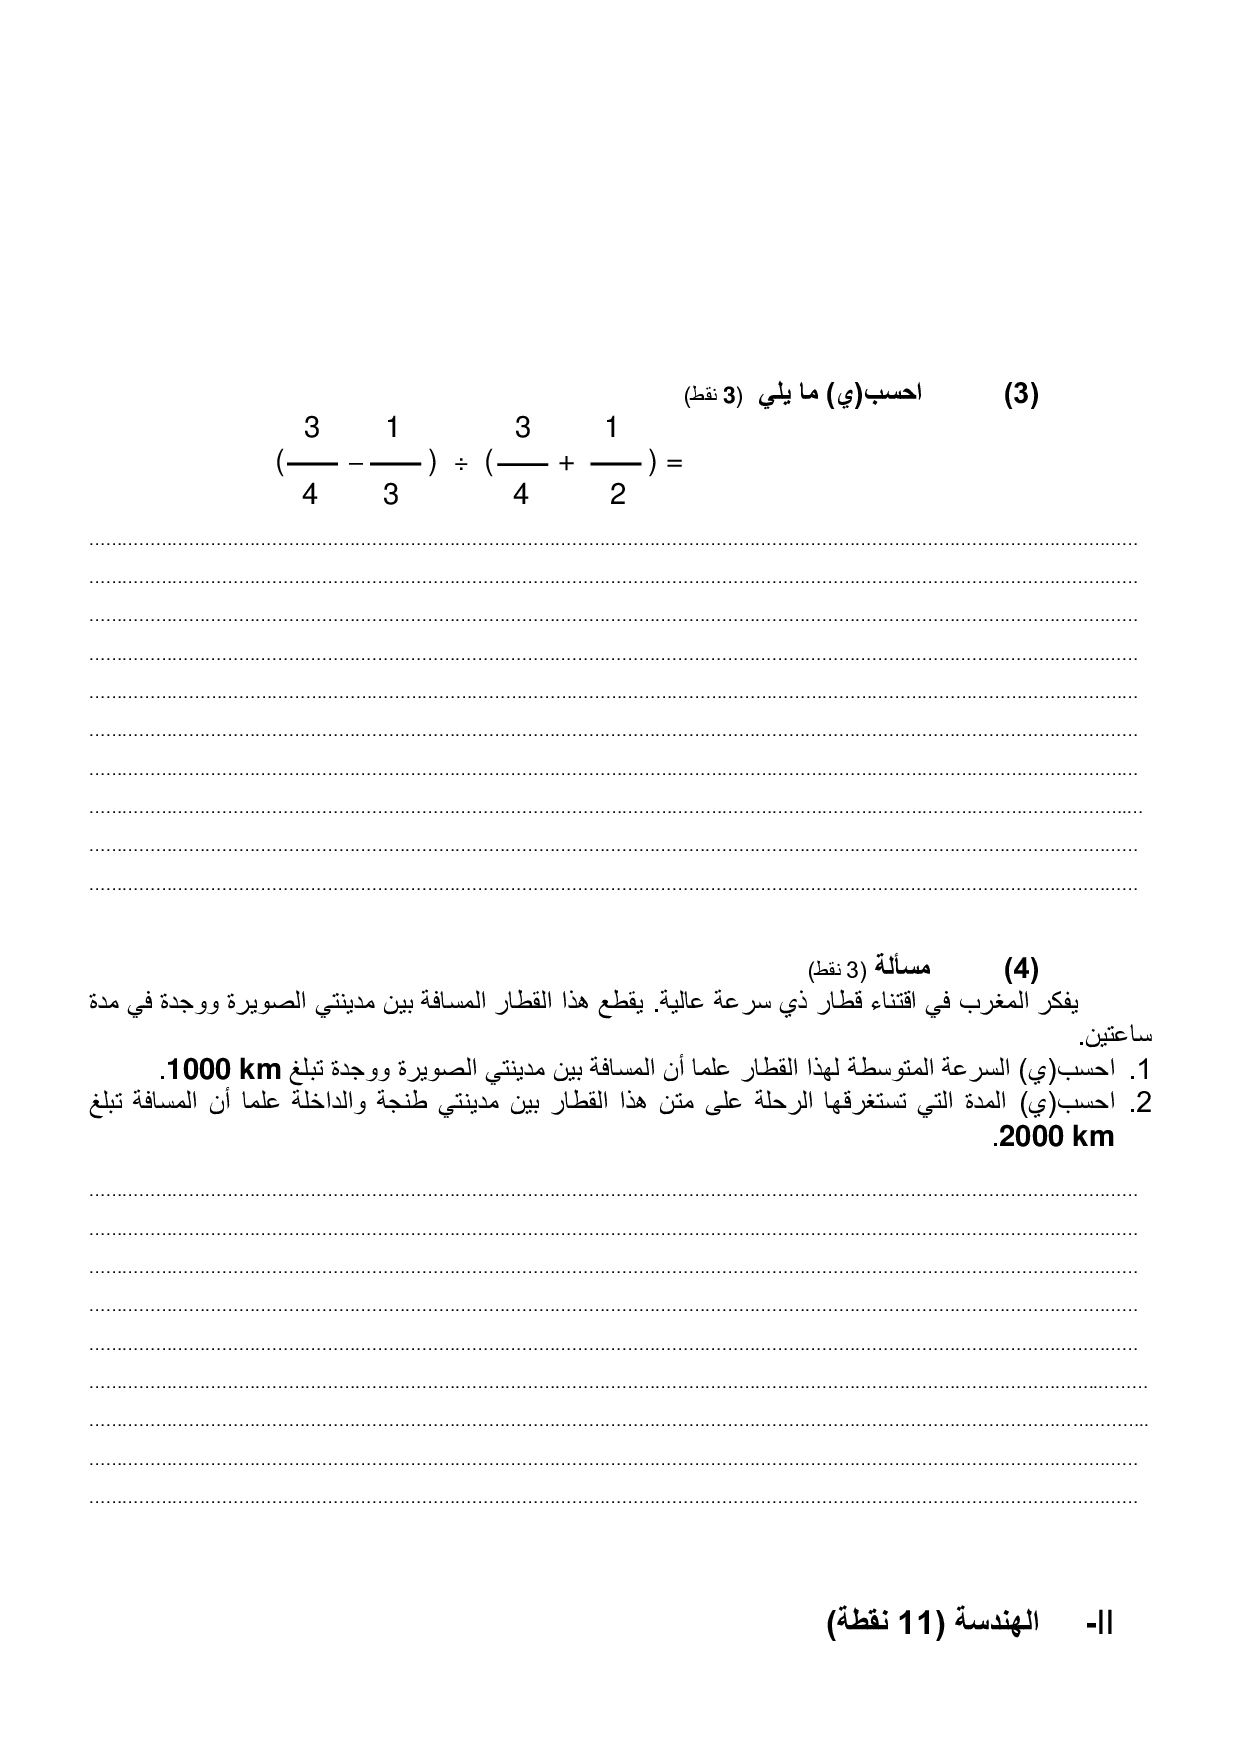 (3) احسب(ي) ما يلي (3 نقط)
3 1 3 1
( — − — ) ÷ ( — + — ) =
4 3 4 2
(4) مسألة (3 نقط)
يفكر المغرب في اقتناء قطار ذي سرعة عالية. يقطع هذا القطار المسافة بين مدينتي الصويرة ووجدة في مدة
ساعتين.
1. احسب(ي) السرعة المتوسطة لهذا القطار علما أن المسافة بين مدينتي الصويرة ووجدة تبلغ 1000 km.
2. احسب(ي) المدة التي تستغرقها الرحلة على متن هذا القطار بين مدينتي طنجة والداخلة علما أن المسافة تبلغ
2000 km.
II- الهندسة (11 نقطة)